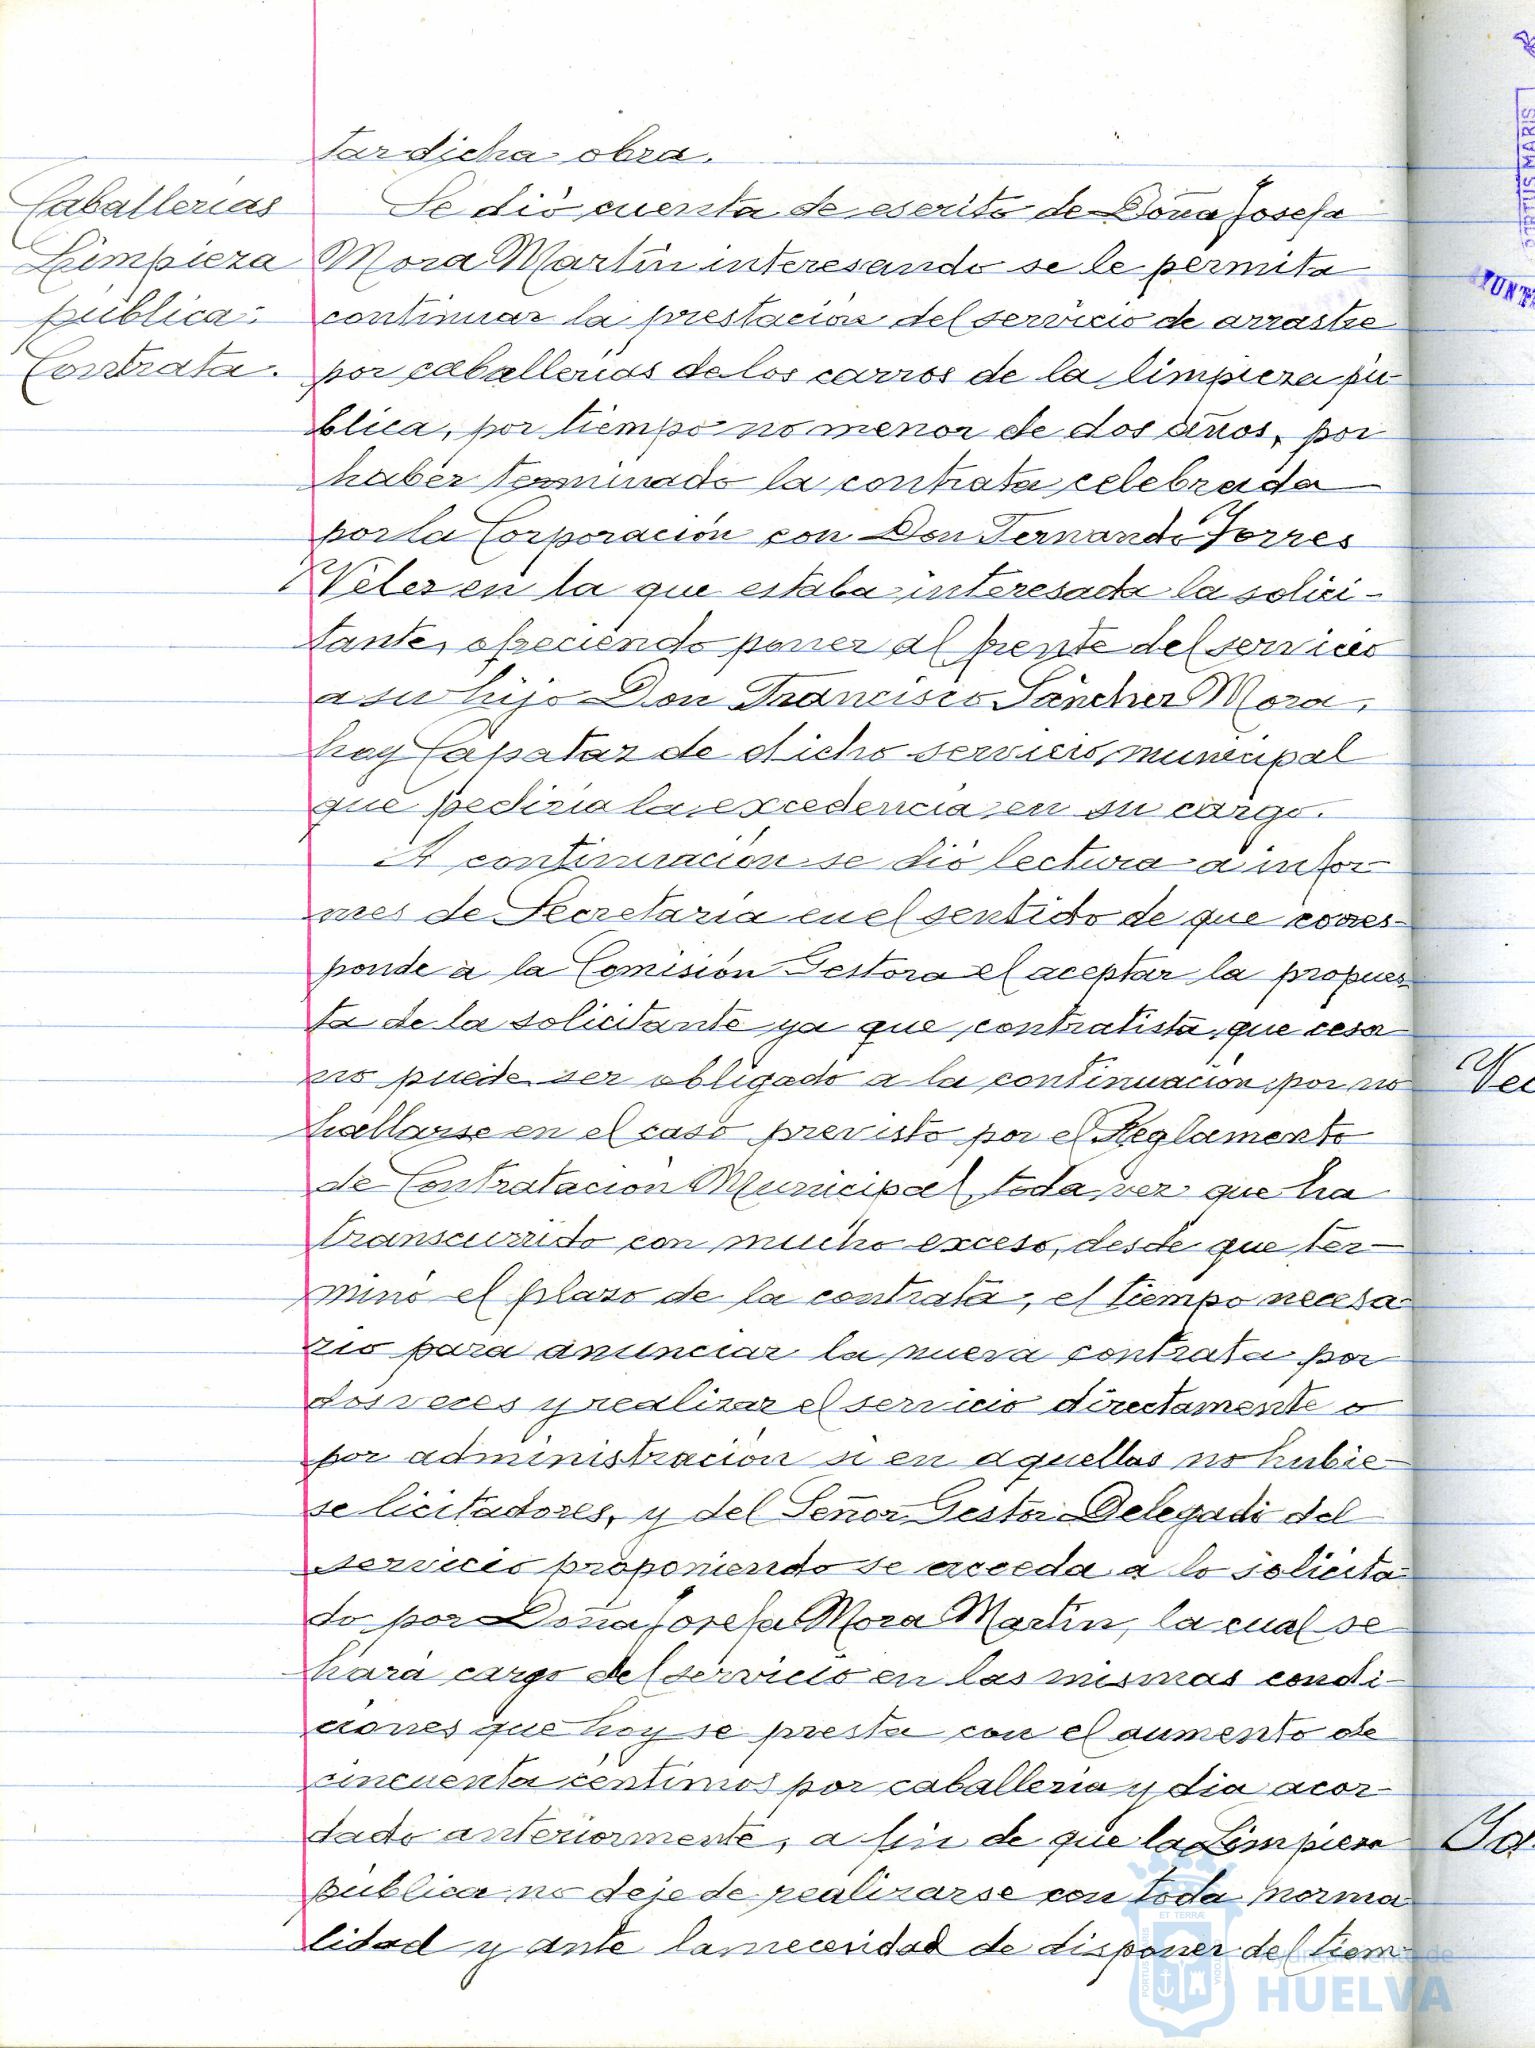 tar dicha obra.
Caballerías
Limpieza
pública:
Contrata.
Se dió cuenta de escrito de Doña Josefa
Mora Martín interesando se le permita
continuar la prestación del servicio de arrastre
por caballerías de los carros de la limpieza pú-
blica, por tiempo no menor de dos años, por
haber terminado la contrata celebrada
por la Corporación con Don Fernando Torres
Velez en la que estaba interesada la solici-
tante, ofreciendo poner al frente del servicio
a su hijo Don Francisco Sánchez Mora,
hoy Capataz de dicho servicio municipal
que pediría la excedencia en su cargo.
A continuación se dió lectura a infor-
mes de Secretaría en el sentido de que corres-
ponde a la Comisión Gestora el aceptar la propues
ta de la solicitante ya que contratista que cesa
no puede ser obligado a la continuación por no
hallarse en el caso previsto por el Reglamento
de Contratación Municipal toda vez que ha
transcurrido con mucho exceso, desde que ter-
minó el plazo de la contrata, el tiempo necesa
rio para anunciar la nueva contrata por
dos veces y realizar el servicio directamente o
por administración si en aquellas no hubie-
se licitadores, y del Señor Gestor Delegado del
servicio proponiendo se acceda a lo solicita-
do por Doña Josefa Mora Martín, la cual se
hará cargo del servicio en las mismas condi-
ciones que hoy se presta con el aumento de
cincuenta céntimos por caballería y día acor-
dado anteriormente, a fin de que la Limpieza
pública no deje de realizarse con toda norma
lidad y ante la necesidad de disponer del tiem-
PORTUS MARIS
AYUNT
Ayuntamiento de
HUELVA
PORTUS MARIS ET TERRÆ CUSTODIA